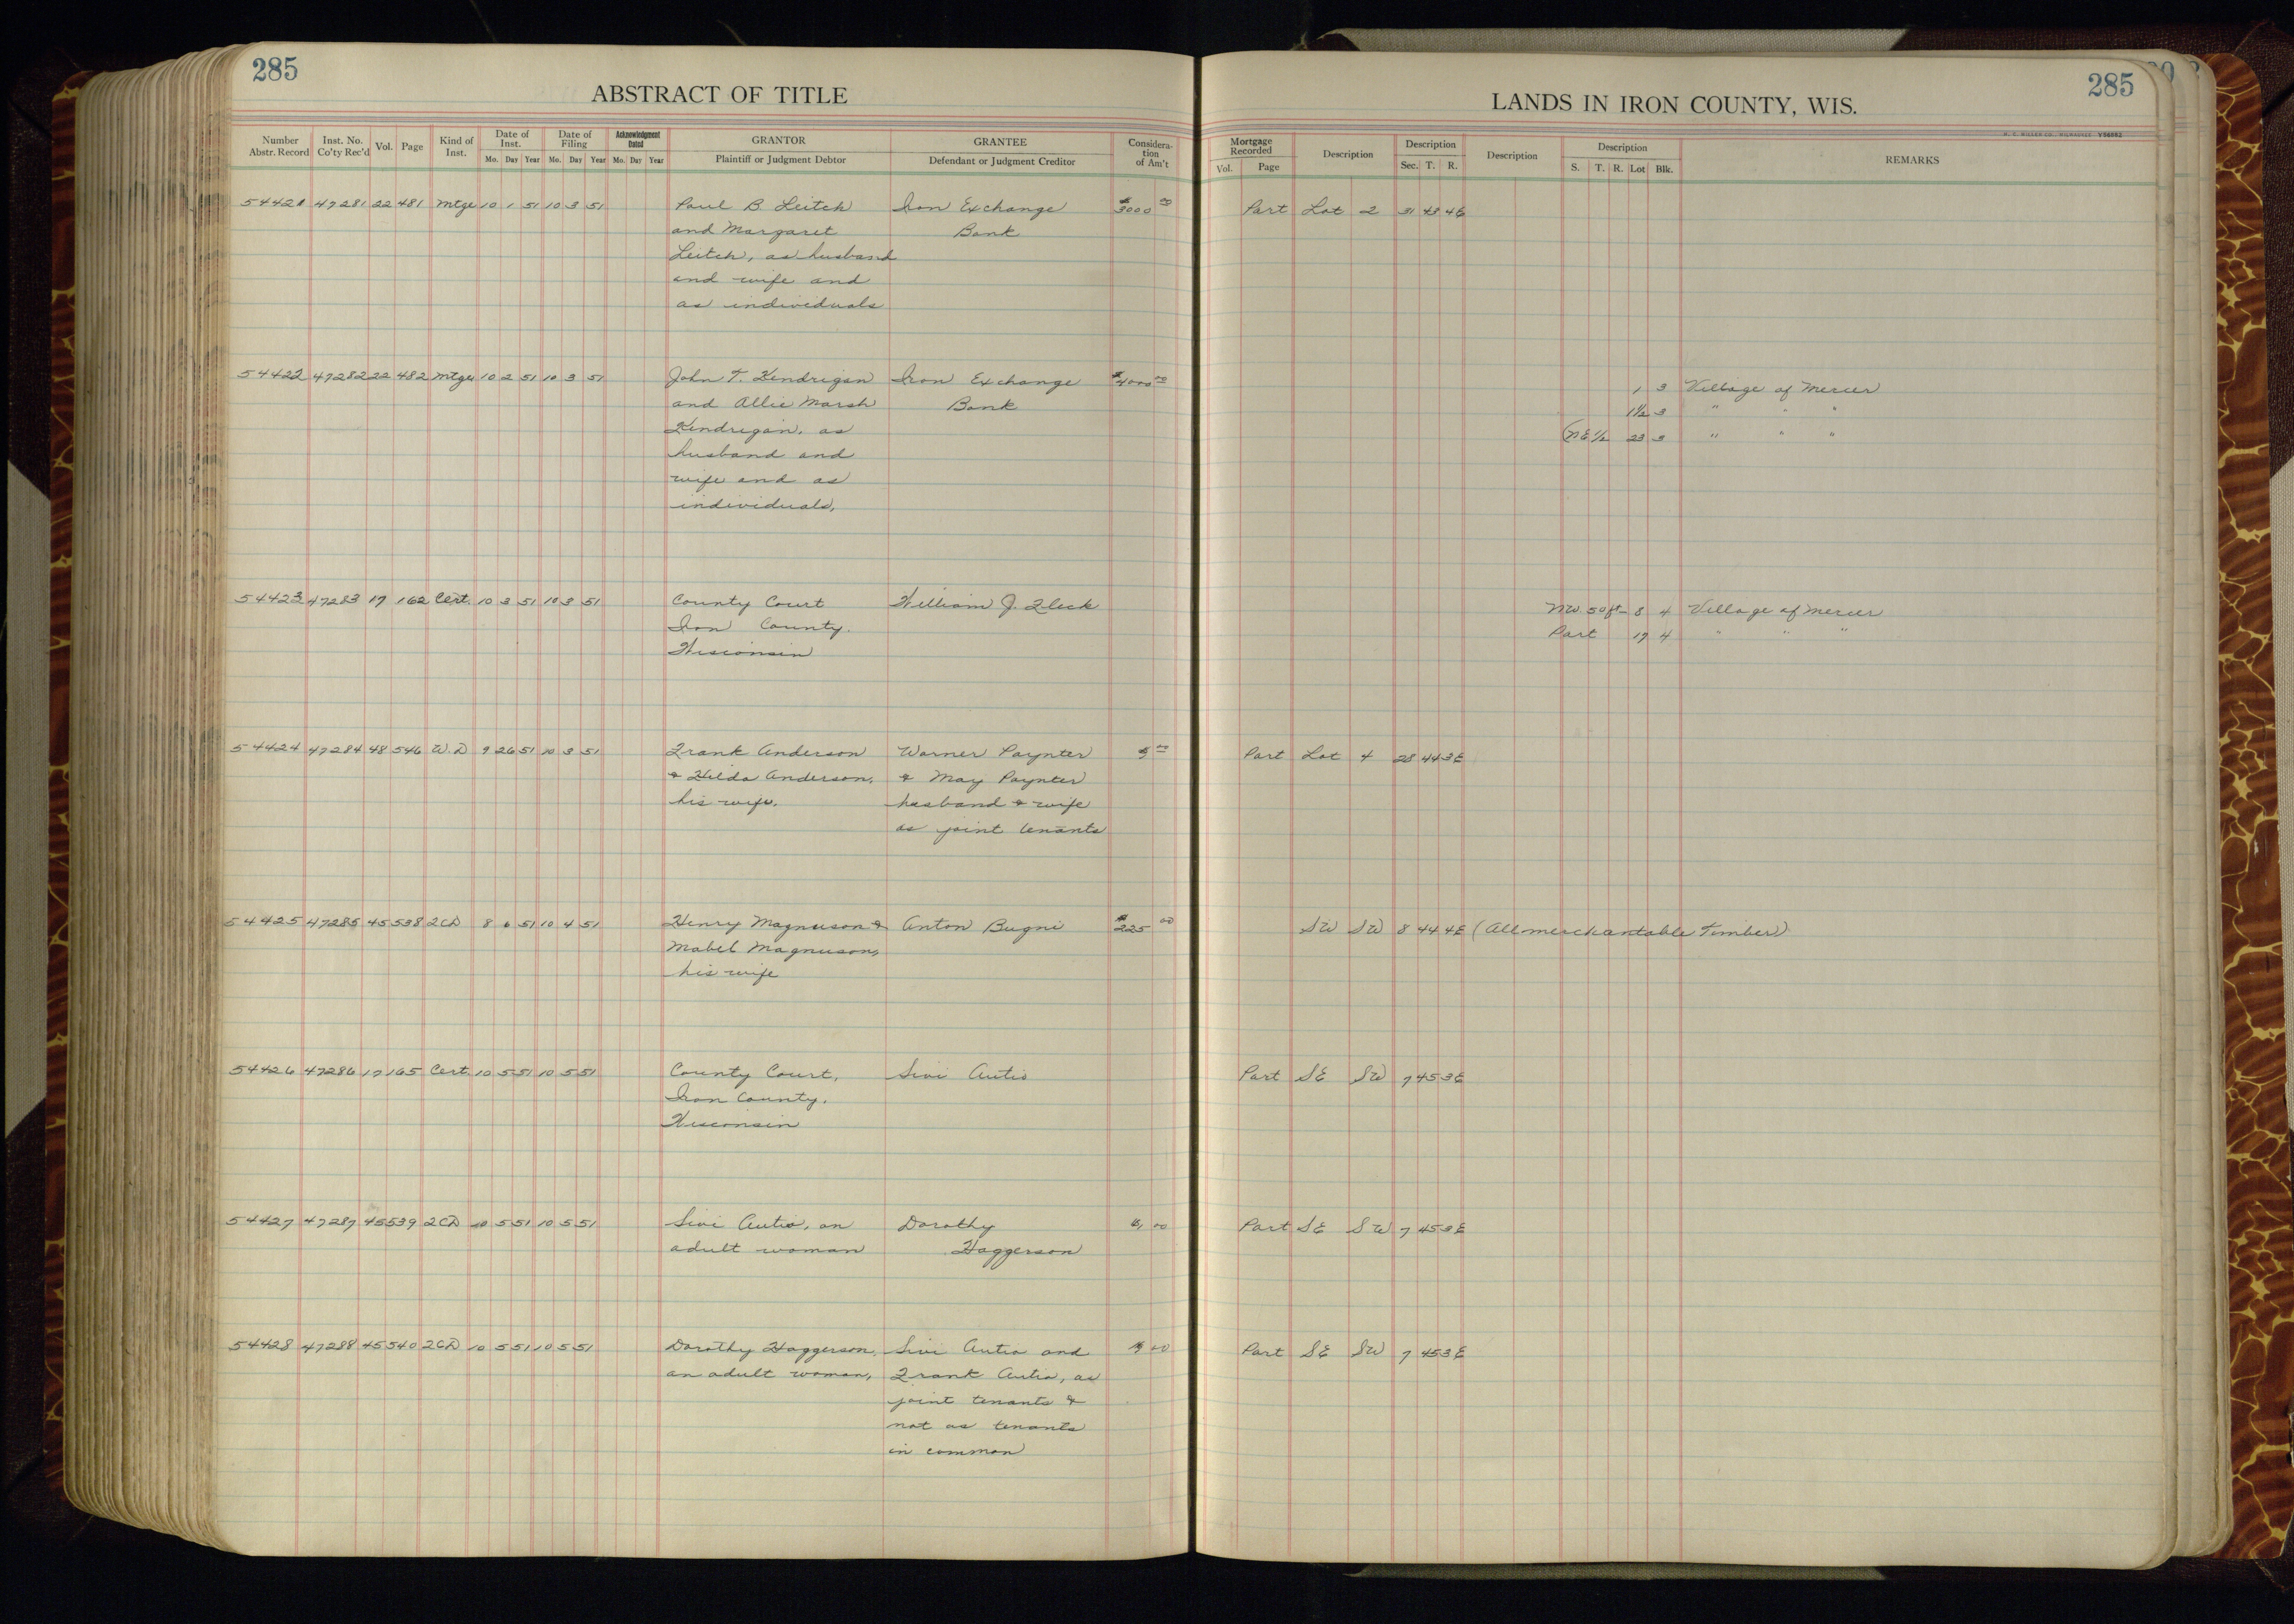 285
ABSTRACT OF TITLE
Number Abstr. Record Inst. No. Co'ty Rec'd Vol. Page Kind of Inst. Date of Inst. Mo. Day Year Date of Filing Mo. Day Year Acknowledgment Dated Mo. Day Year GRANTOR Plaintiff or Judgment Debtor GRANTEE Defendant or Judgment Creditor Considera-tion of Am't
285
LANDS IN IRON COUNTY, WIS.
H. C. MILLER CO. MILWAUKEE Y54662
Mortgage Recorded Vol. Page Description Description Sec. T. R. Description Description S. T. R. Lot Blk. REMARKS
54421 47281 22 481 Mtge 10 1 51 10 3 51 Paul B. Leitch Iron Exchange $3000 00 Part Lot 2 31 43 4E
and Margaret Bank
Leitch, as husband
and wife and
as individuals
54422 47282 22 482 Mtge 10 2 51 10 3 51 John T. Kendrigan Iron Exchange $4000 00 1 3 Village of Mercer
and Allie Marsh Bank 1½ 3 " " "
Kendrigan, as (NE ½ 23 3 " " "
husband and
wife and as
individuals,
54423 47283 17 162 Cert. 10 3 51 10 3 51 County Court William J. Fleck NW 50 ft- 8 4 Village of Mercer
Iron County. Part 17 4 " " "
Wisconsin
54424 47284 48 546 W.D 9 26 51 10 3 51 Frank Anderson Warner Paynter 5 00 Part Lot 4 28 44 3E
& Hilda Anderson, & May Paynter
his wife. husband & wife
as joint tenants
54425 47285 45 538 2CD 8 6 51 10 4 51 Henry Magnuson & Anton Bugni $225 00 SW SW 8 44 4E (All merchantable Timber)
Mabel Magnuson,
his wife
54426 47286 17 165 Cert. 10 5 51 10 5 51 County Court, Sivi Autio Part SE SW 7 45 3E
Iron County,
Wisconsin
54427 47287 45 539 2CD 10 5 51 10 5 51 Sivi Autio, an Dorothy 00 Part SE SW 7 45 3E
adult woman Haggerson
54428 47288 45 540 2CD 10 5 51 10 5 51 Dorothy Haggerson, Sivi Autio and 00 Part SE SW 7 45 3E
an adult woman, Frank Autio, as
joint tenants &
not as tenants
in common